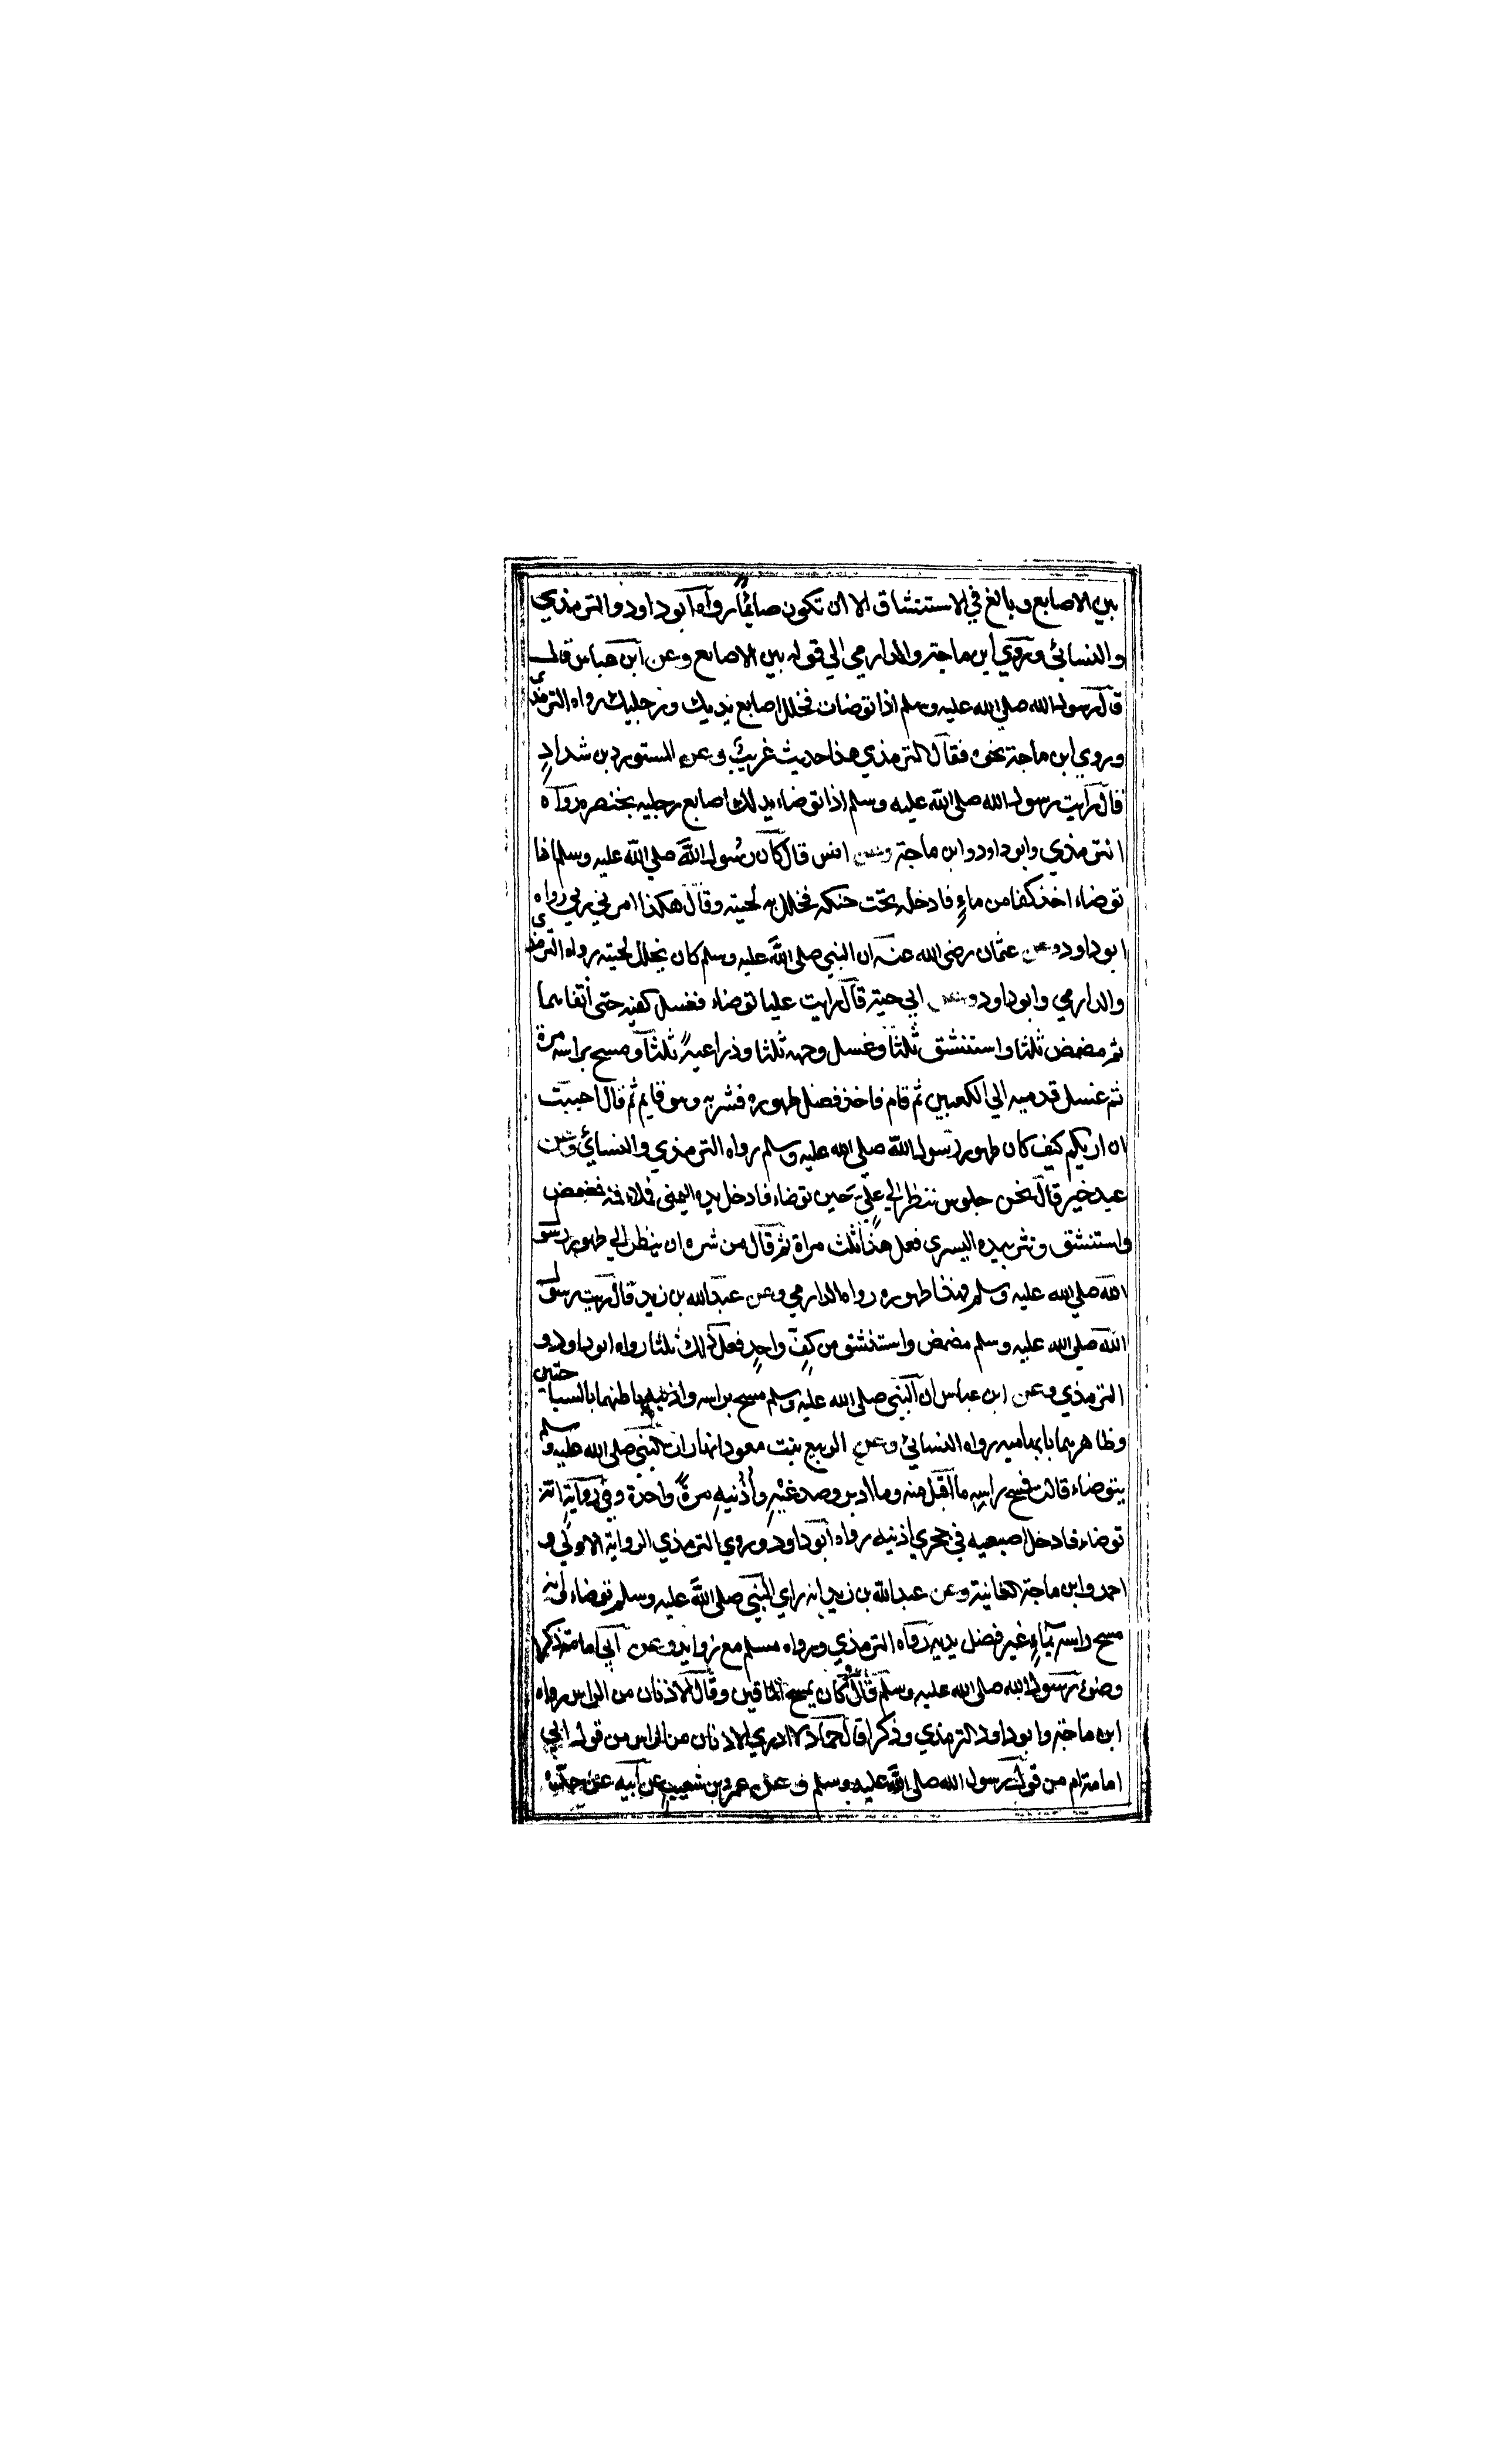 بين الاصابع وبالغ في الاستنشاق الا ان تكون صايمًا رواه ابو داود والترمذي
والنسائي وروي ابن ماجة والدارمي الي قوله بين الاصابع وعن ابن عباس قال
قال رسول الله صلي الله عليه وسلم اذا توضات فخلل اصابع يديك ورجليك رواه الترمذي
وروي ابن ماجة نحوه فقال الترمذي هذا حديث غريب وعن المستورد بن شدادٍ
قال رايت رسول الله صلي الله عليه وسلم اذا توضاء يدلك اصابع رجليه بخنصره رواه
الترمذي وابو داود وابن ماجة وعن انس قال كان رسول الله صلي الله عليه وسلم اذا
توضاء اخذ كفا من ماءٍ فادخله تحت حنكه فخلل به لحيته وقال هكذا امرني ربي رواه
ابو داود وعن عثمان رضي الله عنه ان النبي صلي الله عليه وسلم كان يخلل لحيته رواه الترمذي
والدارمي وابو داود وعن ابي حية قال رايت عليا توضاء فغسل كفيه حتى أنقاهما
ثم مضمض ثلثا واستنشق ثلثا وغسل وجهه ثلثا وذراعيه ثلثا ومسح براسه مرة
ثم غسل قدميه الي الكعبين ثم قام فاخذ فضل طهوره فشربه وهو قايم ثم قال احببت
ان اريكم كيف كان طهور رسول الله صلي الله عليه وسلم رواه الترمذي والنسائي وعن
عبد خير قال نحن جلوس ننظر الي علي حين توضاء فادخل يده اليمنى فملاء فمه فمضمض
واستنشق ونثر بيده اليسرى فعل هذا ثلث مراة ثم قال من شره ان ينظر الي طهور رسول
الله صلي الله عليه وسلم فهذا طهوره رواه الدارمي وعن عبد الله بن زيد قال رايت رسول
الله صلي الله عليه وسلم مضمض واستنشق من كفٍ واحدٍ فعل ذلك ثلثا رواه ابو داود و
الترمذي وعن ابن عباس ان النبي صلي الله عليه وسلم مسح براسه واذنيه باطنهما بالسباحتين
وظاهرهما بابهاميه رواه النسائي وعن الربيع بنت معوذ انها رات النبي صلي الله عليه وسلم
يتوضاء قالت فمسح راسه ما اقبل منه وما ادبر وصدغيْهِ وأُذُنيهِ مرةً واحدة وفي روايةٍ انه
توضاء فادخل اصبعيه في جحري اذنيه رواه ابو داود وروي الترمذي الرواية الاولي و
احمد وابن ماجة الثانية وعن عبد الله بن زيد انه راي النبي صلي الله عليه وسلم توضاء وانه
مسح راسه بماءٍ غير فضل يديه رواه الترمذي ورواه مسلم مع زوايد وعن ابي امامة ذكر
وضوء رسول الله صلي الله عليه وسلم قال وكان يمسح الماقين وقال الاذنان من الراس رواه
ابن ماجة وابو داود الترمذي وذكرا قال حماد لا ادري الاذنان من الراس من قول ابي
امامة ام من قول رسول الله صلي الله عليه وسلم وعن عمرو بن شعيبٍ عن ابيه عن جده